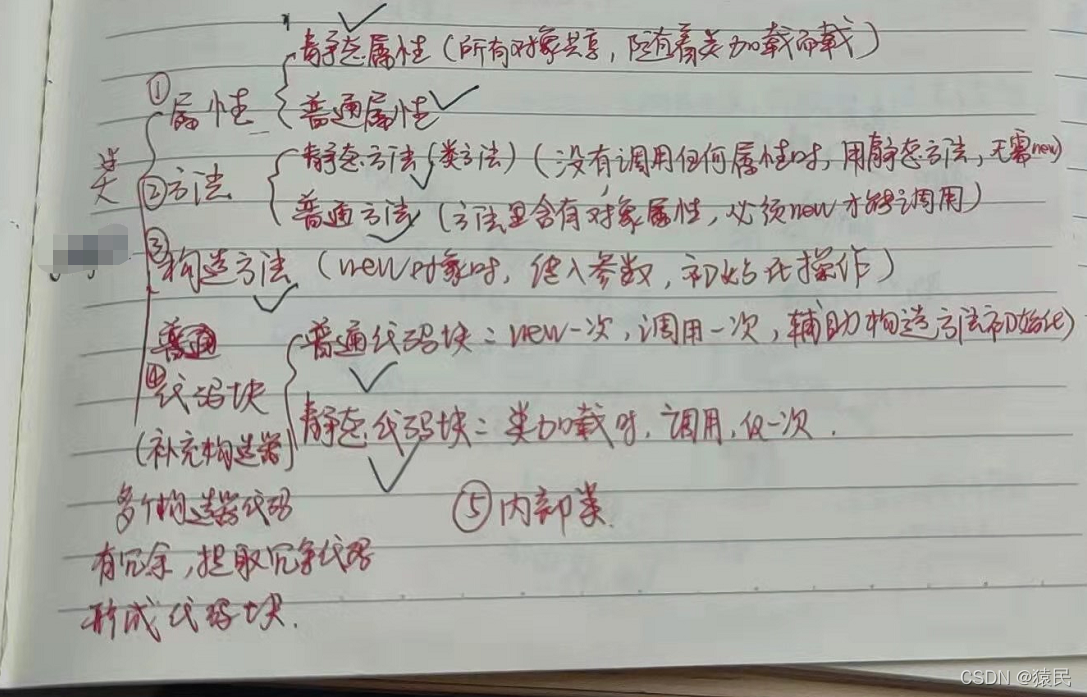 静态属性（所有对象共享，随着类加载而载）
①属性
普通属性
类
静态方法（类方法）（没有调用任何属性时，用静态方法，无需new）
②方法
普通方法（方法里含有对象属性，必须new才能调用）
③构造方法（new对象时，传入参数，初始化操作）
普通
普通代码块：new一次，调用一次，辅助构造方法初始化）
④代码块
静态代码块：类加载时，调用，仅一次.
（补充构造器）
多个构造器代码
⑤内部类.
有冗余，提取冗余代码
形成代码块.
CSDN @猿民